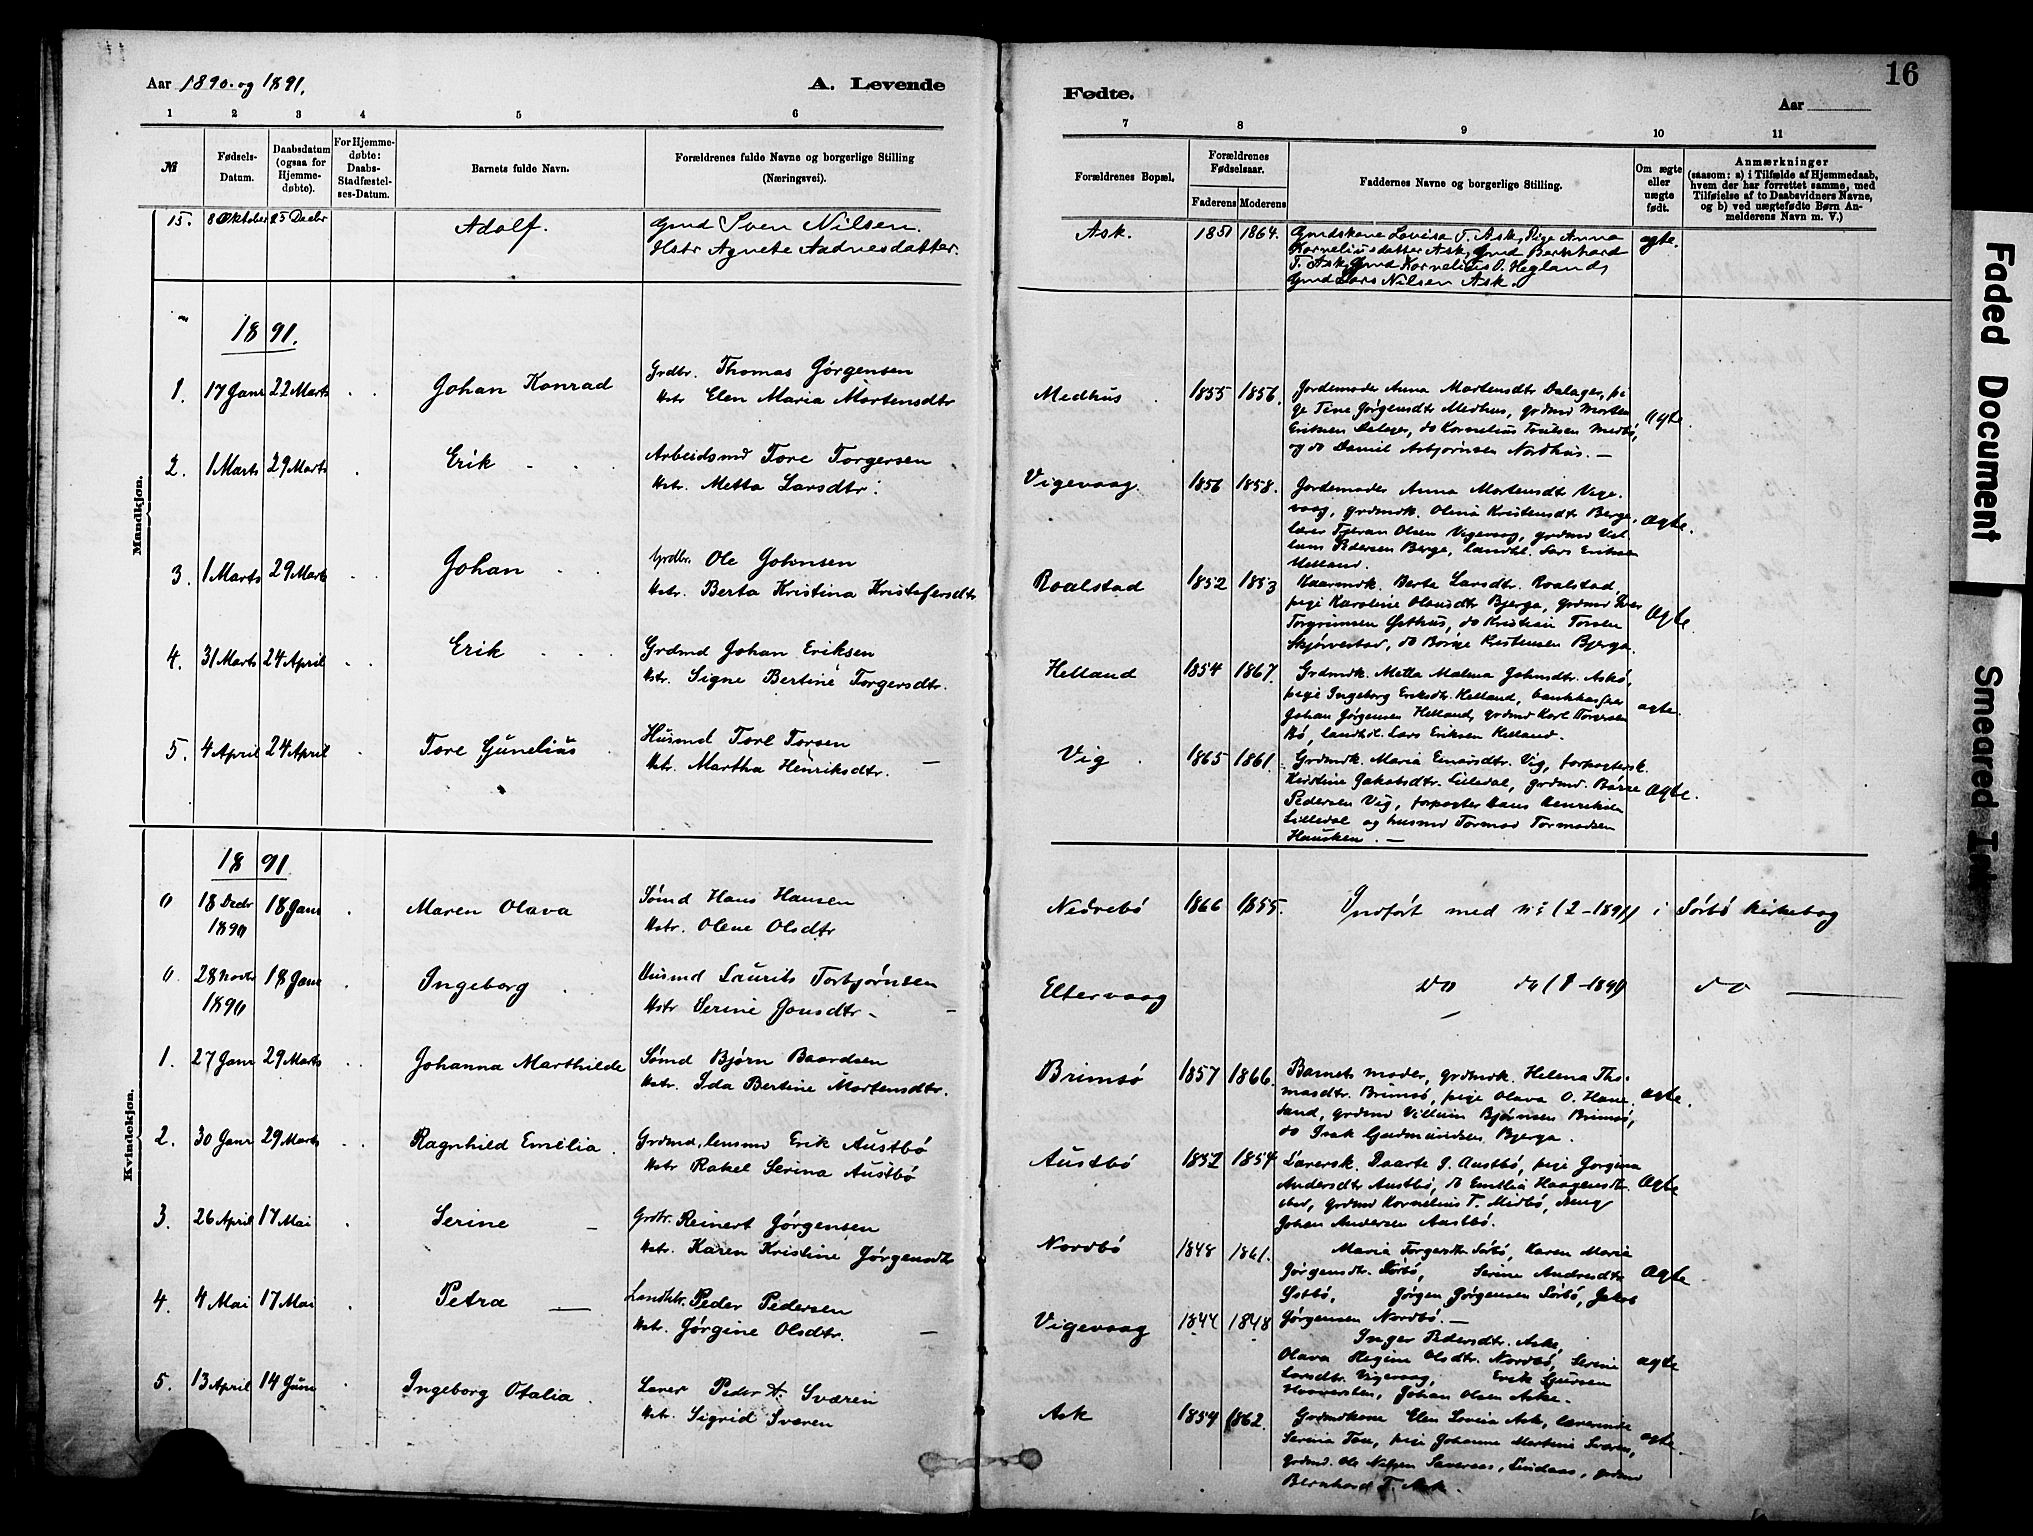 Aar 1890. og 1891.
A. Levende
1 2 3 4 5 6
№
Fødsels-Datum.
Daabsdatum (ogsaa for Hjemmedøbte).
For Hjemmedøbte: Daabs-Stadfæstelses-Datum.
Barnets fulde Navn.
Forældrenes fulde Navne og borgerlige Stilling
(Næringsvei).
15. 8 Oktober 25 Decbr Adolf. Gmd Sven Nilsen.
Hstr Agnete Aadnesdatter.
Mandkjøn.
1891.
1. 17 Janr 22 Marts Johan Konrad Grdbr. Thomas Jørgensen
Hstr. Elen Maria Mortensdtr
2. 1 Marts 29 Marts Erik Arbeidsmd Tore Torgersen
Hstr. Metta Larsdtr.
3. 1 Marts 29 Marts Johan Grdbr. Ole Johnsen
Hstr. Berta Kristina Kristofersdtr
4. 31 Marts 24 April Erik Grdmd Johan Eriksen
Hstr. Signe Bertine Torgersdtr.
5. 4 April 24 April Tore Gunelius Husmd Tore Torsen
Hstr. Martha Henriksdtr.
Kvindekjøn.
1891
0 18 Decbr 1890 18 Janr Maren Olava Sømd Hans Hansen
Hstr. Olene Olsdtr
0 28 Novbr 1890 18 Janr Ingeborg Husmd Laurits Torbjørnsen
Hstr Serine Jonsdtr
1. 27 Janr 29 Marts Johanna Marthilde Sømd Bjørn Baardsen
Hstr. Ida Bertine Mortensdtr.
2. 30 Janr 29 Marts Ragnhild Emelia Grdmd, lensmd Erik Austbø
Hstr Rakel Serina Austbø
3. 26 April 17 Mai Serine Grdbr. Reinert Jørgensen
Hstr. Karen Kristine Jørgensdtr
4. 4 Mai 17 Mai Petra Landhdlr. Peder Pedersen
Hstr. Jørgine Olsdtr.
5. 13 April 14 Juni Ingeborg Otalia Lærer Peder A. Sværen
Hstr. Sigrid Sværen
16
Fødte.
Aar
7 8 9 10 11
Forældrenes Bopæl.
Forældrenes Fødselsaar.
Faderens Moderens
Faddernes Navne og borgerlige Stilling.
Om ægte eller uægte født.
Anmærkninger
(saasom: a) i Tilfælde af Hjemmedaab,
hvem der har forrettet samme, med
Tilføielse af to Daabsvidners Navne,
og b) ved uægtefødte Børn An-
melderens Navn m. V.)
Ask. 1851 1864. Gmdskone Lovise T. Ask, Pige Anna ægte.
Korneliusdatter Ask, Gmd Bernhard
T. Ask, Gmd Kornelius O. Hegland,
Gmd Lars Nilsen Ask.
Medhus 1855 1856. Jordemoder Anna Mortensdtr Dalager, pi-
ge Tine Jørgensdtr Medhus, grdmd Morten ægte.
Eriksen Dalager, do Kornelius Paulsen Medbø,
og do Daniel Asbjørnsen Nordhus.
Vigevaag 1856 1858. Jordemoder Anna Mortensdt Vige-
vaag, grdmdk. Olena Kristensdtr Berge, ægte.
lærer Tjeran Olsen Vigevaag, grdmd Vil-
lum Pedersen Berge, landhl. Lars Eriksen
Helland.
Roalstad 1852 1853 Kaarmdk. Berta Larsdtr. Roalstad,
pige Karoline Olausdtr Bjerga, grdmd Lars
Torgrimsen Østhus, do Kristian Torsen ægte.
Skjørvestad, do Børge Kristensen Bjerga.
Helland 1854 1867. Grdmdk. Metta Malena Johnsdtr. Askø,
pige Ingeborg Eriksdtr. Helland, bankkasserer
Johan Jørgensen Helland, grdmd Karl Torersen ægte.
Bø, landhdl. Lars Eriksen Helland.
Vig 1865 1861. Grdmdk. Maria Einarsdtr. Vig, forpagtersk.
Kristine Jakobsdtr. Lilledal, grdmd. Børre ægte.
Pedersen Vig, forpagter Hans Henriksen
Lilledal og husmd Tormod Tormodsen
Hausken.
Nedrebø 1866 1855. Indført med № (2–1891) i Sørbø kirkebog
Eltervaag do do (1–1891) do
Brimsø 1857 1866. Barnets moder, grdmdk. Helena Tho-
masdtr. Brimsø, pige Olava O. Hane- ægte.
sand, grdmd Villum Bjørnsen Brimsø,
do Isak Gudmundsen Bjerga.
Austbø 1852 1854 Lærersk. Daarte S. Austbø, pige Jorgina
Andersdtr Austbø, do Emilia Haagensdt- ægte
stad, grdmd Kornelius T. Midbø, ung
Johan Andersen Austbø.
Nordbø 1848 1861. Maria Torgersdtr Sørbø, Karen Maria
Jørgensdtr. Sørbø, Serine Andresdtr ægte
Østbø, Jørgen Jørgensen Sørbø, Jakob
Jørgensen Nordbø.
Vigevaag 1844 1848 Inger Pedersdtr. Aske,
Olava Regine Olsdtr. Nordbø, Serine ægte
Larsdtr. Vigevaag, Erik Sjursen
Johan Olsen Aske.
Ask 1854 1862. Grdmdkone Elen Lovisa Ask, lærerinde
Serina Tou, pige Johanne Martine Sværen, ægte.
grdmd. Ole Lindaas, grdmd
Bernhard T. Ask.
Faded Document
Smeared Ink